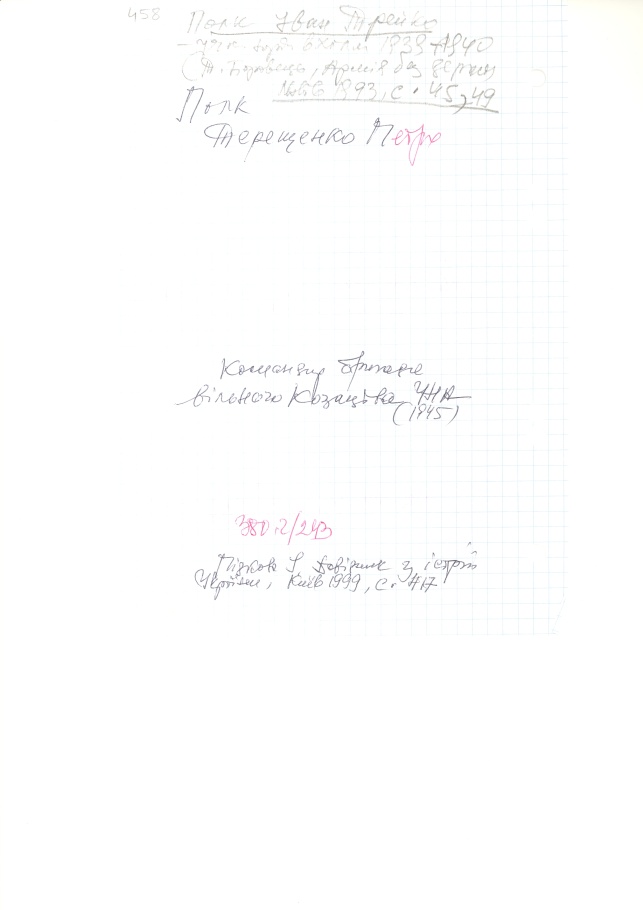 458
Полк Іван Трейко
Холм 1939-1940
(Т. Боровець, Армія без держави
Львів 1993, с. 45, 49
Полк
Терещенко Петро
Командир бригади
вільного Козацтва УНА
(1945)
380.2/2
Підкова І. Довідник з історії
України, Київ 1999, с. 417